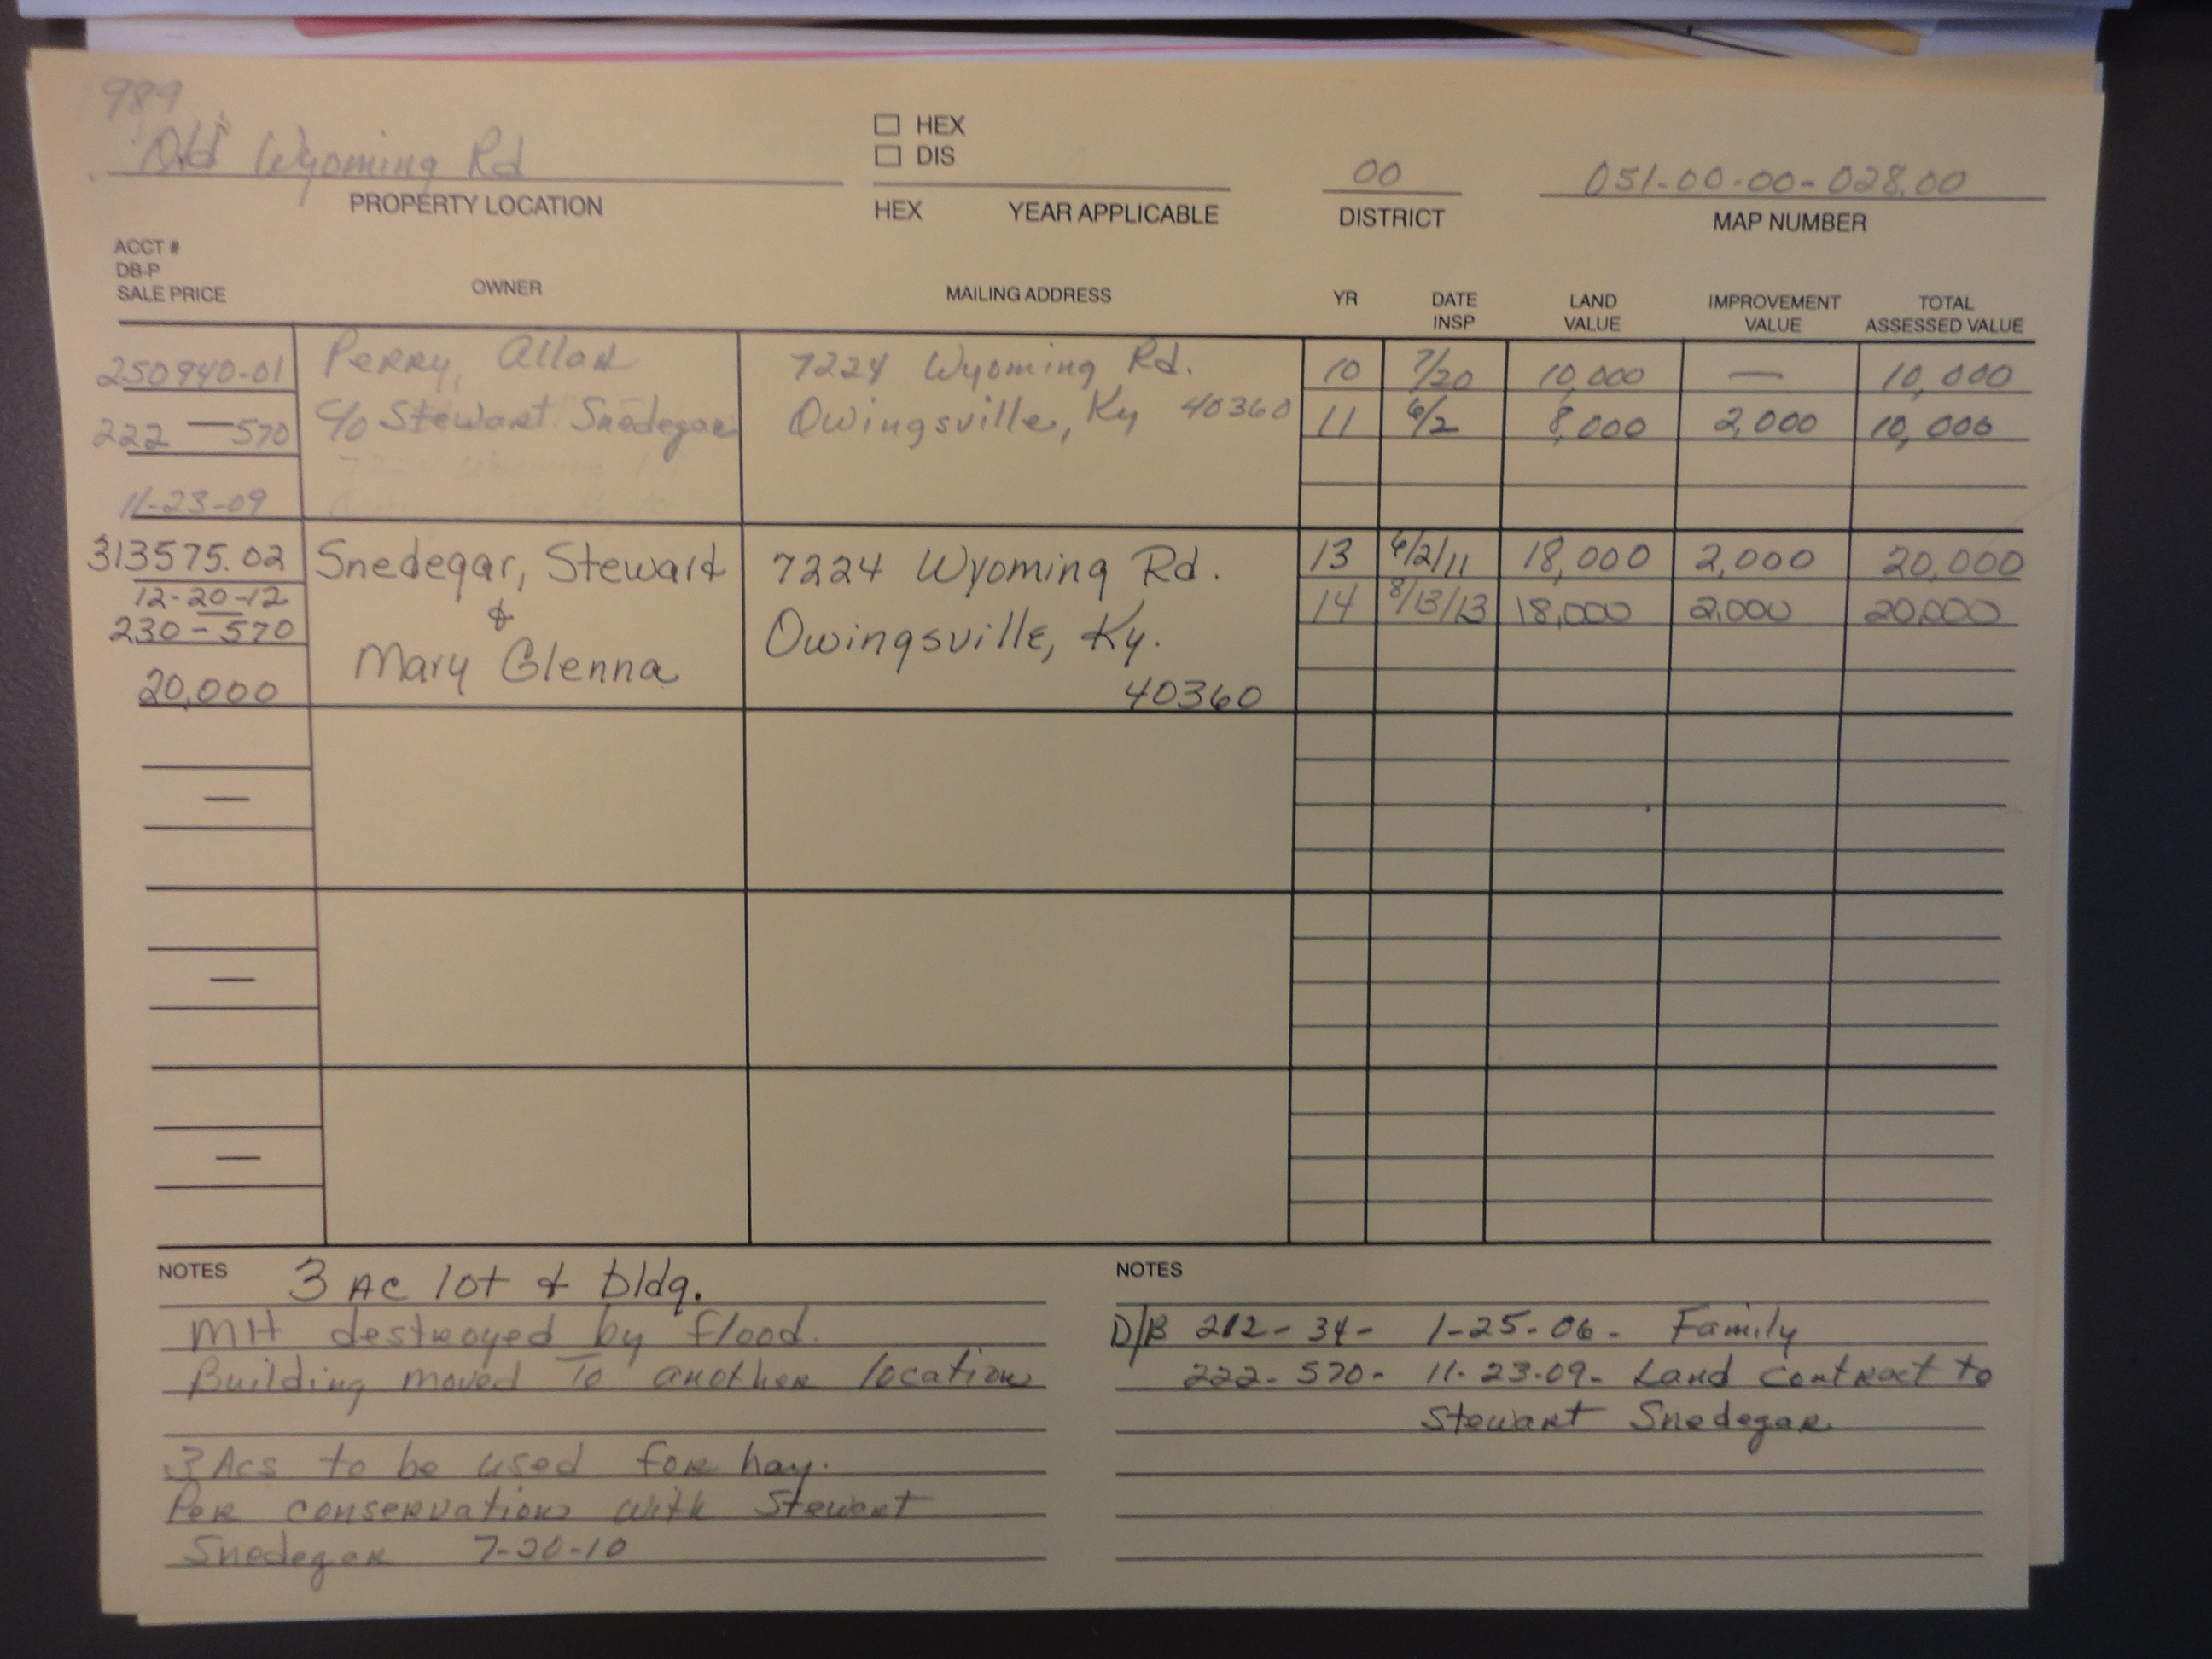 989
Old Wyoming Rd
PROPERTY LOCATION
HEX
DIS
HEX YEAR APPLICABLE
00
DISTRICT
051-00-00-028.00
MAP NUMBER
ACCT #
DB-P
SALE PRICE
OWNER
MAILING ADDRESS
YR
DATE INSP
LAND VALUE
IMPROVEMENT VALUE
TOTAL ASSESSED VALUE
250940-01
222 — 570
11-23-09
Perry, Allan
c/o Stewart Snedegar
7224 Wyoming Rd.
Owingsville, Ky 40360
10 7/20 10,000 — 10,000
11 6/2 8,000 2,000 10,000
313575.02
12-20-12
230 - 570
20,000
Snedegar, Steward
&
Mary Glenna
7224 Wyoming Rd.
Owingsville, Ky.
40360
13 6/2/11 18,000 2,000 20,000
14 8/13/13 18,000 2,000 20,000
—
—
—
NOTES 3 AC lot & bldg.
MH destroyed by flood.
Building moved To another location
3 Acs to be used for hay.
Per conservation with Stewart
Snedegar 7-20-10
NOTES
D/B 212- 34- 1-25-06- Family
222- 570- 11-23-09- Land Contract to
Stewart Snedegar